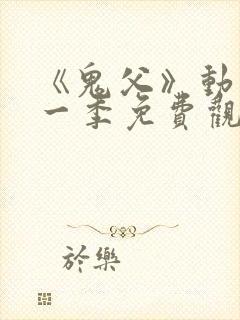 《鬼父》動
一季免費觀
於樂